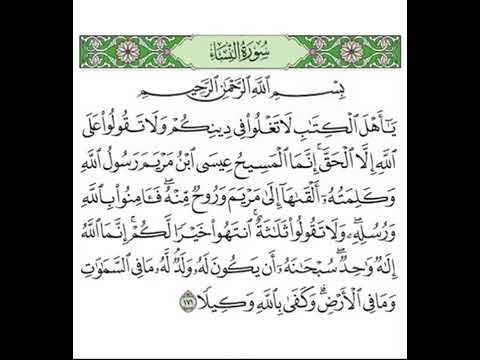 سُورَةُ النِّسَاءِ
بِسْمِ ٱللَّهِ ٱلرَّحْمَٰنِ ٱلرَّحِيمِ
يَٰٓأَهْلَ ٱلْكِتَٰبِ لَا تَغْلُوا۟ فِى دِينِكُمْ وَلَا تَقُولُوا۟ عَلَى
ٱللَّهِ إِلَّا ٱلْحَقَّ ۚ إِنَّمَا ٱلْمَسِيحُ عِيسَى ٱبْنُ مَرْيَمَ رَسُولُ ٱللَّهِ
وَكَلِمَتُهُۥٓ أَلْقَىٰهَآ إِلَىٰ مَرْيَمَ وَرُوحٌ مِّنْهُ ۖ فَـَٔامِنُوا۟ بِٱللَّهِ
وَرُسُلِهِۦ ۖ وَلَا تَقُولُوا۟ ثَلَٰثَةٌ ۚ ٱنتَهُوا۟ خَيْرًا لَّكُمْ ۚ إِنَّمَا ٱللَّهُ
إِلَٰهٌ وَٰحِدٌ ۖ سُبْحَٰنَهُۥٓ أَن يَكُونَ لَهُۥ وَلَدٌ ۘ لَّهُۥ مَا فِى ٱلسَّمَٰوَٰتِ
وَمَا فِى ٱلْأَرْضِ ۗ وَكَفَىٰ بِٱللَّهِ وَكِيلًا ١٧١